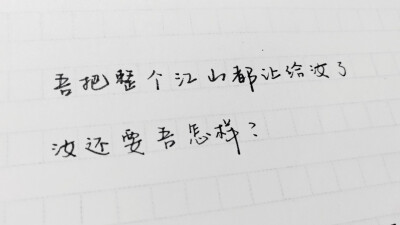 吾把整个江山都让给汝了
汝还要吾怎样?